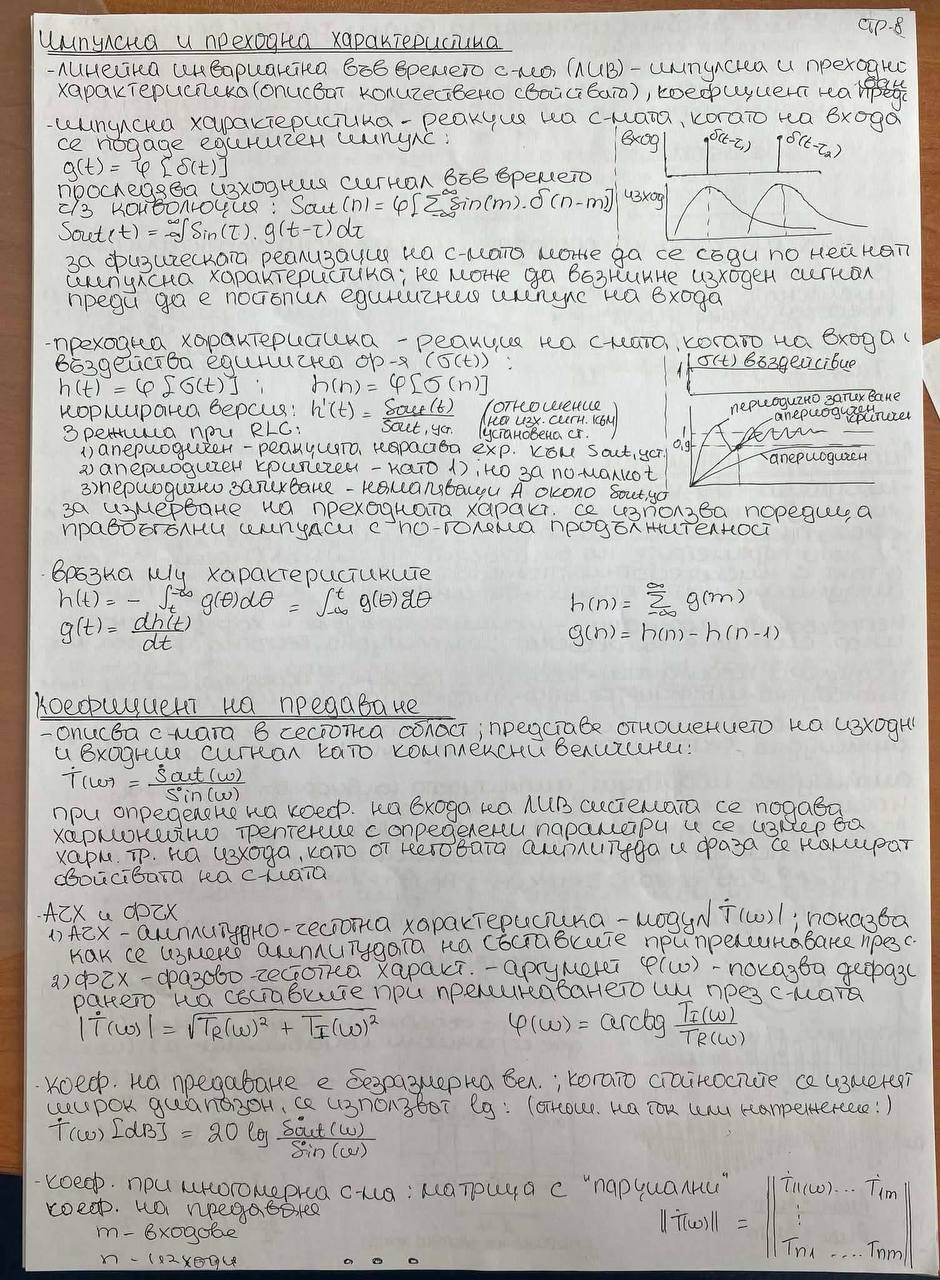 стр. 8
Импулсна и преходна характеристика
- линейна инвариантна във времето с-ма (ЛИВ) - импулсна и преходна
характеристика (описват количествено свойствата), коефициент на пред
- импулсна характеристика - реакция на с-мата, когато на входа
се подаде единичен импулс:
вход δ(t-τ₁) δ(t-τ₂)
g(t) = φ[δ(t)]
проследява изходния сигнал във времето
ч/з конволюция: Sout(n) = φ[∑_{-∞}^{∞} Sin(m).δ(n-m)]
изход
Sout(t) = -∞∫^∞ Sin(τ).g(t-τ)dτ
за физическата реализация на с-мата може да се съди по нейнат
импулсна характеристика; не може да възникне изходен сигнал
преди да е постъпил единичния импулс на входа
- преходна характеристика - реакция на с-мата, когато на входа
въздейства единична ф-я (σ(t)):
1 σ(t) въздействие
h(t) = φ[σ(t)]; h(n) = φ[σ(n)]
нормирана версия: h'(t) = Sout(t)/Sout,уст. (отношение на изх. сигн. към установена ст.)
периодично затихване
апериодичен критичен
1
0,9
апериодичен
3 режима при RLC:
1) апериодичен - реакцията нараства exp. към Sout,уст.
2) апериодичен критичен - като 1), но за по-малко t
3) периодично затихване - намаляващи A около Sout,уст
за измерване на преходната характ. се използва поредица
правоъгълни импулси с по-голяма продължителност
- връзка м/у характеристиките
h(t) = - ∫_t^{-∞} g(θ)dθ = ∫_{-∞}^t g(θ)dθ h(n) = ∑_{-∞}^{∞} g(m)
g(t) = dh(t)/dt g(n) = h(n) - h(n-1)
Коефициент на предаване
- описва с-мата в честотна област; представя отношението на изходни
и входния сигнал като комплексни величини:
Ṫ(ω) = Ṡout(ω)/Ṡin(ω)
при определяне на коеф. на входа на ЛИВ системата се подава
хармонично трептение с определени параметри и се измерва
харм. тр. на изхода, като от неговата амплитуда и фаза се намират
свойствата на с-мата
- АЧХ и ФЧХ
1) АЧХ - амплитудно-честотна характеристика - модул |Ṫ(ω)|; показва
как се изменя амплитудата на съставките при преминаване през с-
2) ФЧХ - фазово-честотна характ. - аргумент φ(ω) - показва дефази
рането на съставките при преминаването им през с-мата
|Ṫ(ω)| = √(T_R(ω)² + T_I(ω)²) φ(ω) = arctg T_I(ω)/T_R(ω)
- коеф. на предаване е безразмерна вел.; когато стойностите се изменят
широк диапазон, се използват lg: (отнош. на ток или напрежение:)
Ṫ(ω) [dB] = 20 lg Ṡout(ω)/Ṡin(ω)
- коеф. при многомерна с-ма: матрица с "парциални"
коеф. на предаване
m - входове
n - изходи
||Ṫ(ω)|| = || Ṫ11(ω) ... Ṫ1m
⋮
Ṫn1 .... Ṫnm ||